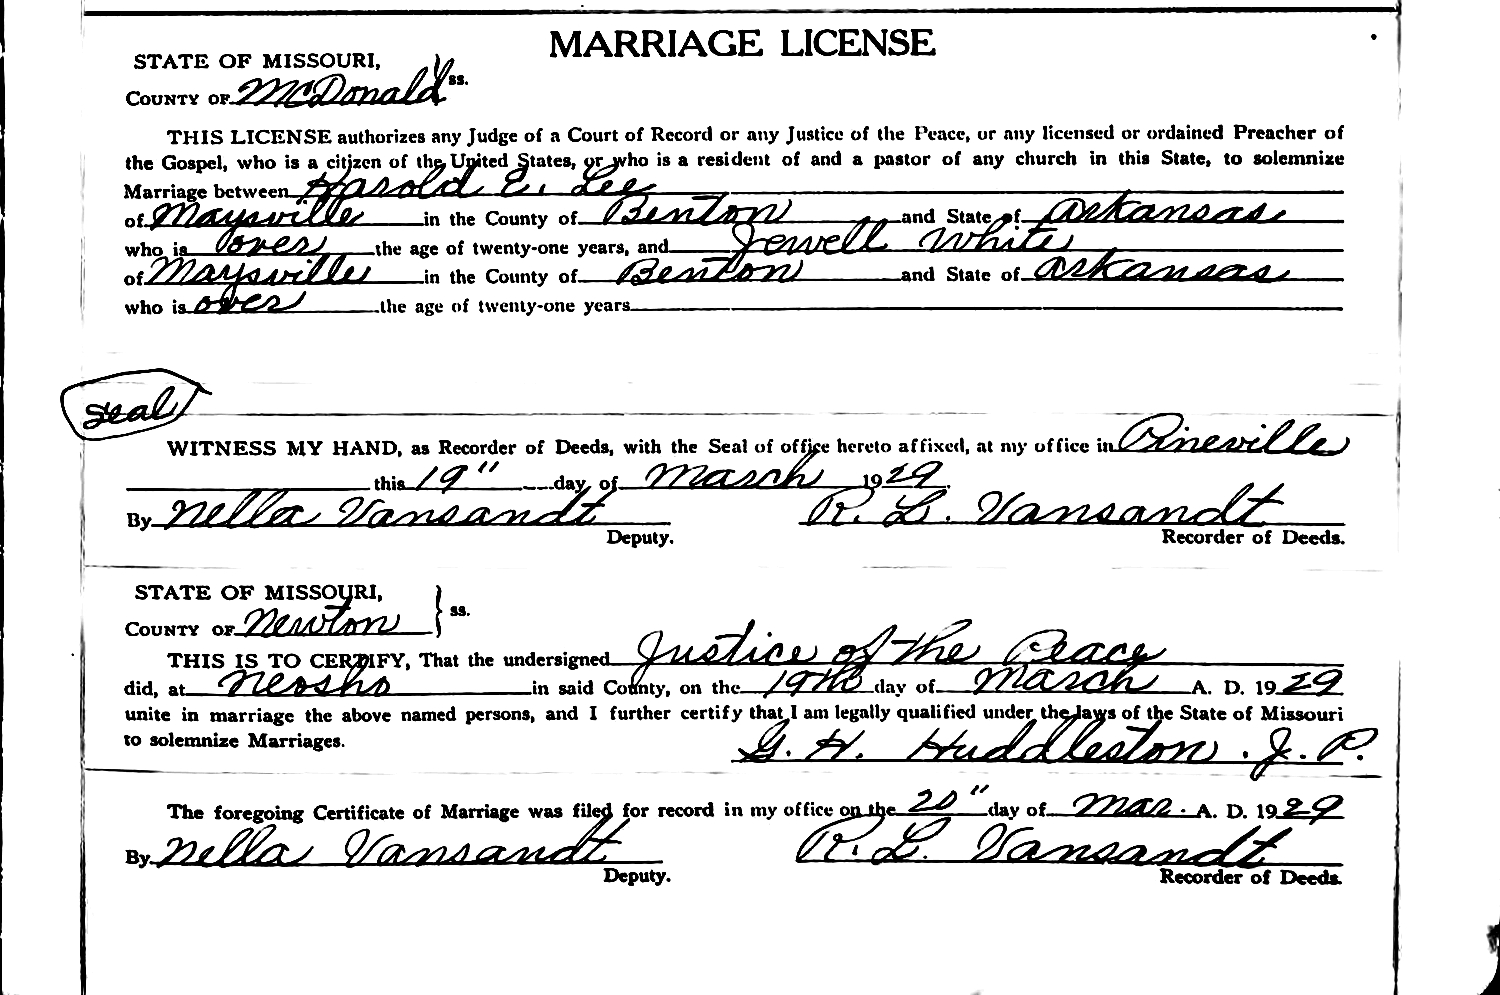 MARRIAGE LICENSE
STATE OF MISSOURI,
COUNTY OF McDonald ss.
THIS LICENSE authorizes any Judge of a Court of Record or any Justice of the Peace, or any licensed or ordained Preacher of
the Gospel, who is a citizen of the United States, or who is a resident of and a pastor of any church in this State, to solemnize
Marriage between Harold E. Lee
of Maysville in the County of Benton and State of Arkansas
who is over the age of twenty-one years, and Jewell White
of Maysville in the County of Benton and State of Arkansas
who is over the age of twenty-one years
seal
WITNESS MY HAND, as Recorder of Deeds, with the Seal of office hereto affixed, at my office in Pineville
this 19" day of March 1929.
By Nella Vansandt R. L. Vansandt
Deputy. Recorder of Deeds.
STATE OF MISSOURI,
COUNTY OF Newton ss.
THIS IS TO CERTIFY, That the undersigned Justice of the Peace
did, at Neosho in said County, on the 19th day of March A. D. 1929
unite in marriage the above named persons, and I further certify that I am legally qualified under the laws of the State of Missouri
to solemnize Marriages.
G. H. Huddleston. J. P.
The foregoing Certificate of Marriage was filed for record in my office on the 20" day of Mar. A. D. 1929
By Nella Vansandt R. L. Vansandt
Deputy. Recorder of Deeds.